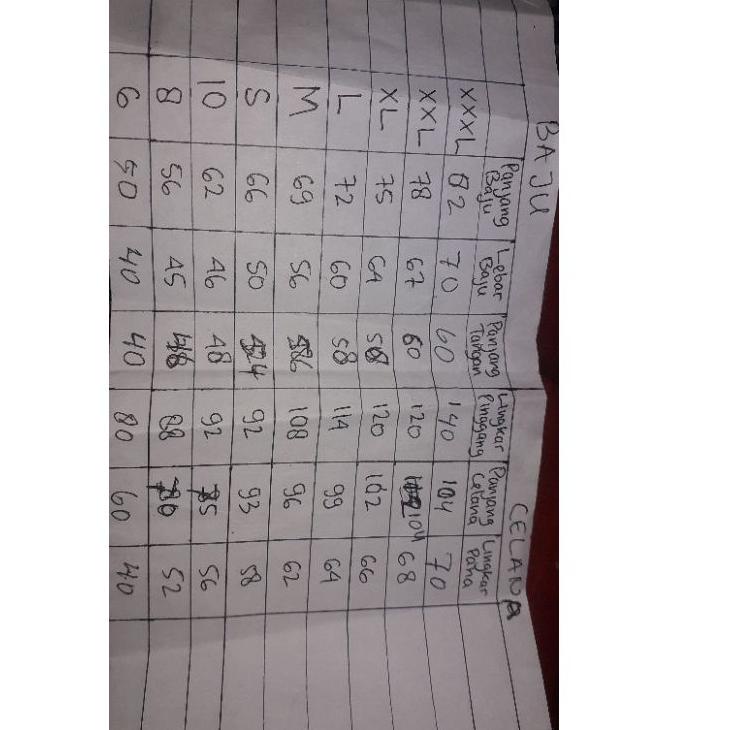 BAJU CELANA
Panjang Baju Lebar Baju Panjang Tangan Lingkar Pinggang Panjang Celana Lingkar Paha
XXXL 82 70 60 140 104 70
XXL 78 67 60 120 104 68
XL 75 64 58 120 102 66
L 72 60 58 114 99 64
M 69 56 56 108 96 62
S 66 50 92 93 58
10 62 46 48 92 75 56
8 56 45 88 70 52
6 50 40 40 80 60 40